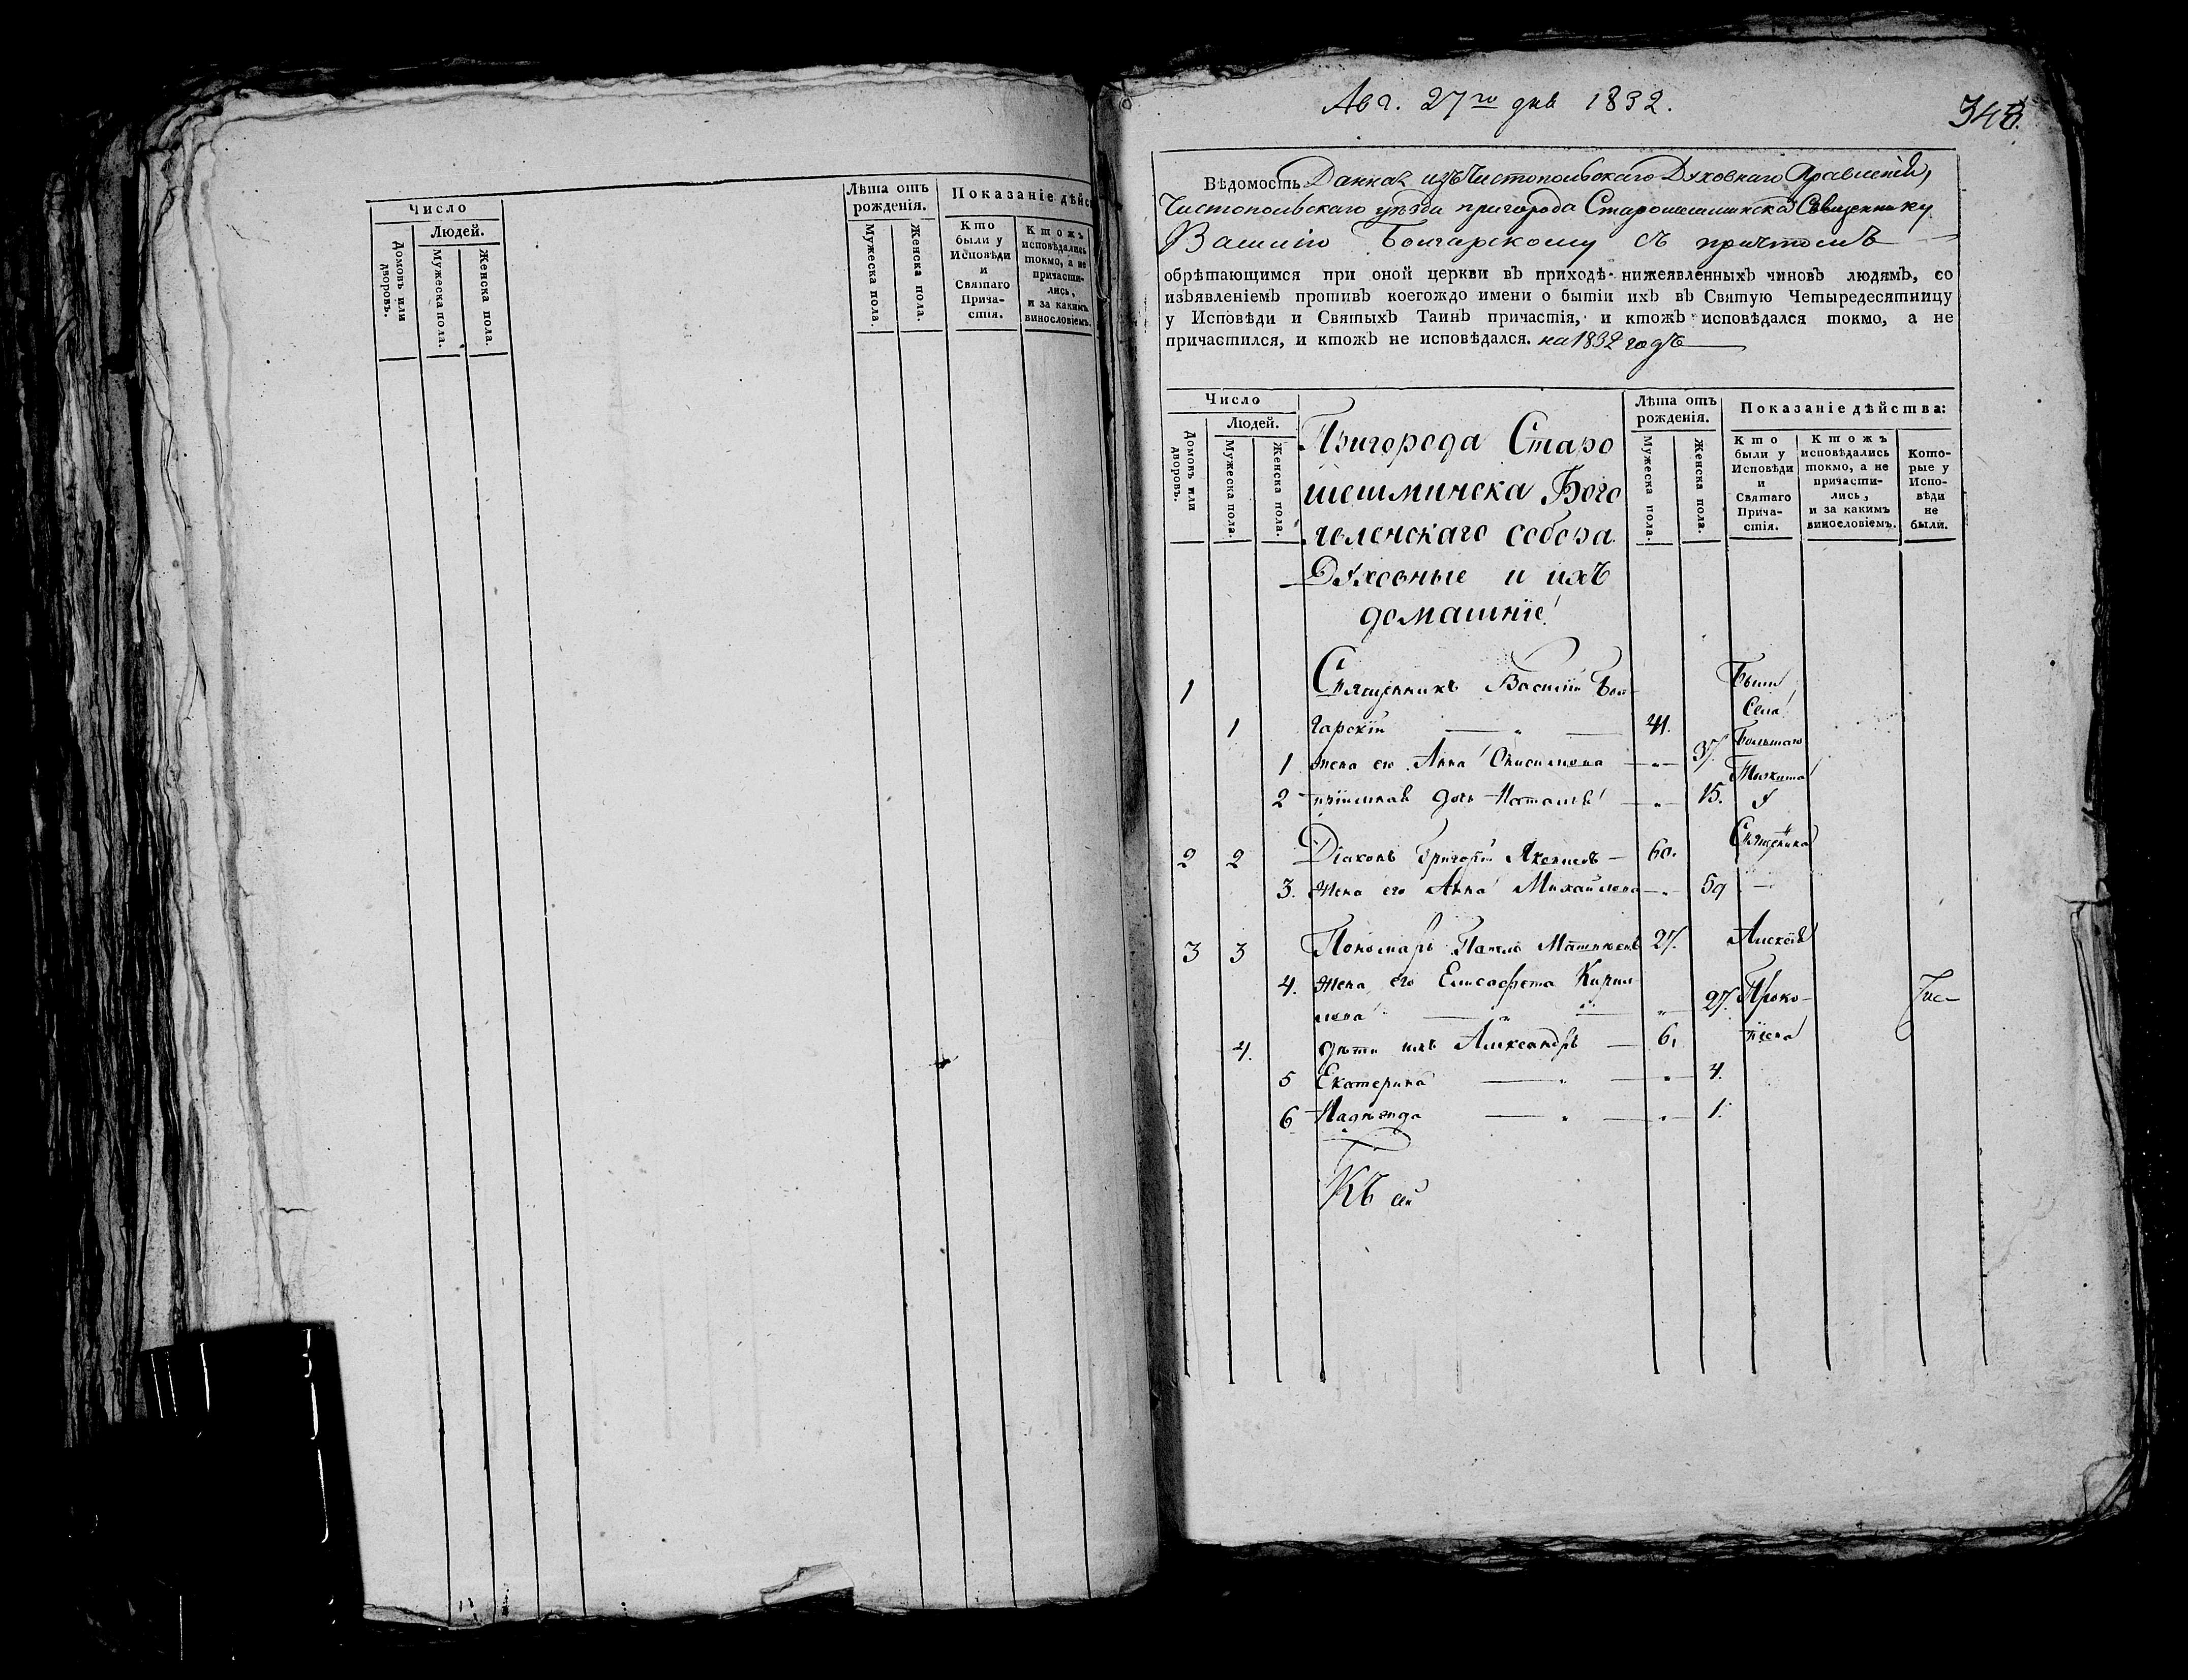 Число
Людей.
Домовъ или дворовъ.
Мужеска пола.
Женска пола.
Лѣта отъ рожденія.
Мужеска пола.
Женска пола.
Показаніе дѣйс
Кто были у Исповѣди и Святаго Прича-стія.
Ктожъ исповѣдались токмо, а не причасти-лись, и за какимъ винословіемъ.
Авг. 27го дня 1832.
348.
Вѣдомость Данная изъ Чистопольскаго Духовнаго Правленія,
Чистопольскаго уѣзда пригорода Старошешминска Священнику
Василію Болгарскому съ причтомъ
обрѣтающимся при оной церкви въ приходѣ нижеявленныхъ чиновъ людямъ, со
изъявленіемъ противъ коегождо имени о бытіи ихъ въ Святую Четыредесятницу
у Исповѣди и Святыхъ Таинъ причастія, и ктожъ исповѣдался токмо, а не
причастился, и ктожъ не исповѣдался. на 1832 годъ
Число
Людей.
Домовъ или дворовъ.
Мужеска пола.
Женска пола.
Лѣта отъ рожденія.
Мужеска пола.
Женска пола.
Показаніе дѣйства:
Кто были у Исповѣди и Святаго Прича-стія.
Ктожъ исповѣдались токмо, а не причасти-лись, и за какимъ винословіемъ.
Кото-рые у Испо-вѣди не были.
Пригорода Старо
шешминска Бого
явленскаго собора
Духовные и ихъ
домашніе
1 Священникъ Василій Бол- Были
Села
1 гарскій 41. Большаго
1 жена его Анна 37.
2 дочь Наталья 15. у
2 2 Діаконъ Григорій 60. Священника
3. Жена его Анна Михайлова 59
3 3 Пономарь Павелъ 27. Алексѣя
4. Жена его Елисафета Кирил-
лова 27. Проко-
4. дѣти ихъ Александръ 6. піева
5 Екатерина 4.
6 Надежда 1.
Къ сей